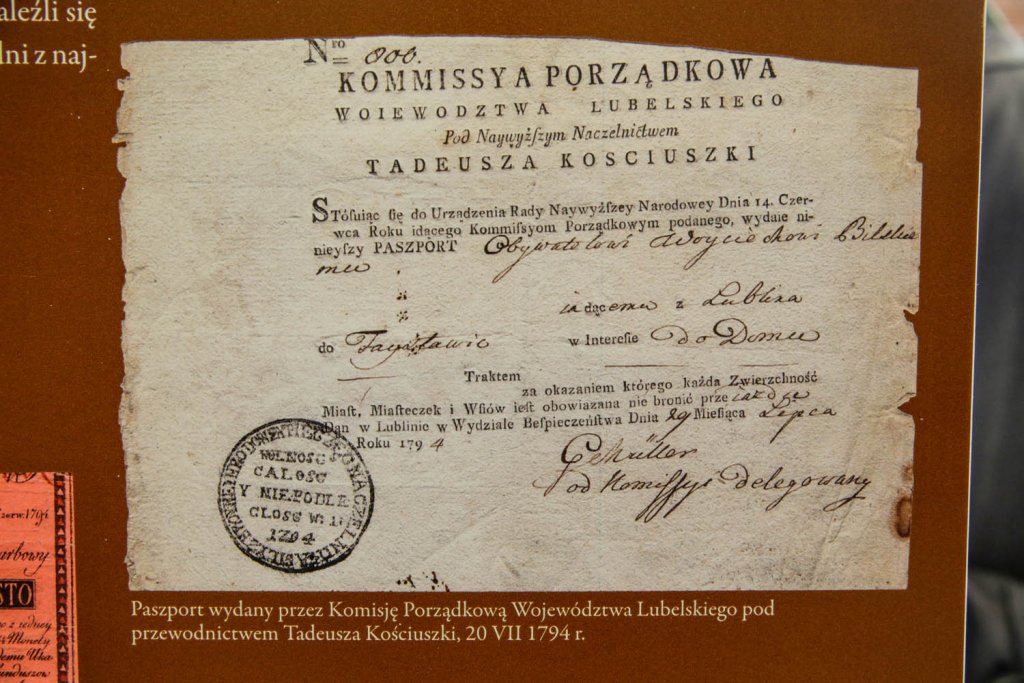 aleźli się
dni z naj-
Nro 800.
KOMMISSYA PORZĄDKOWA
WOIEWODZTWA LUBELSKIEGO
Pod Naywyżſzym Naczelnictwem
TADEUSZA KOSCIUSZKI
STóſuiąc ſię do Urządzenia Rady Naywyżſzey Narodowey Dnia 14. Czer-
wca Roku idącego Kommiſſyom Porządkowym podanego, wydaie ni-
nieyſzy PASZPORT Obywatelowi Woyciechowi Bilskie
mu
iadącemu z Lublina
do
w Intereſie do Domu
Traktem
za okazaniem którego każda Zwierzchność
Miaſt, Miaſteczek i Wſiów ieſt obowiązana nie bronić prze iazdu
Dan w Lublinie w Wydziale Beſpieczeńſtwa Dnia 29 Mieſiąca Lipca
Roku 1794
Müller
od Komissyi delegowany
WOLNOSC
CALOSC
Y NIEPODLE
GLOSC
1794
Paszport wydany przez Komisję Porządkową Województwa Lubelskiego pod
przewodnictwem Tadeusza Kościuszki, 20 VII 1794 r.
zerw. 1794
arbowy
STO
Monety
demu Uka-
unduszow